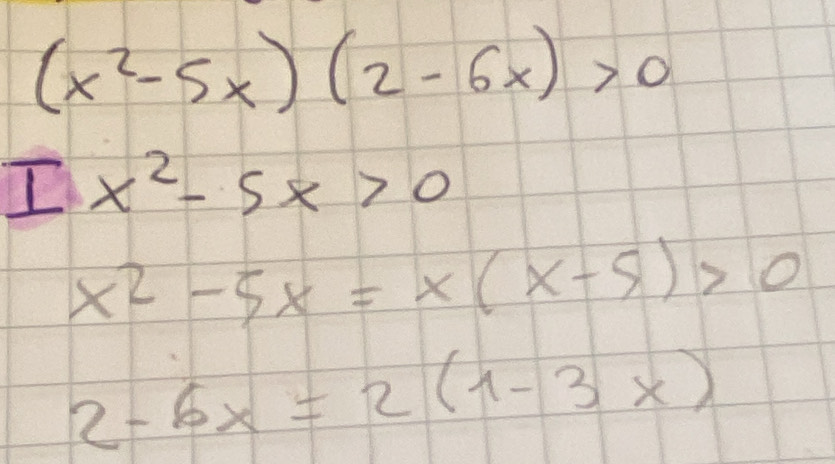 (x²-5x)(2-6x)>0
I x²-5x>0
x²-5x=x(x-5)>0
2-6x=2(1-3x)